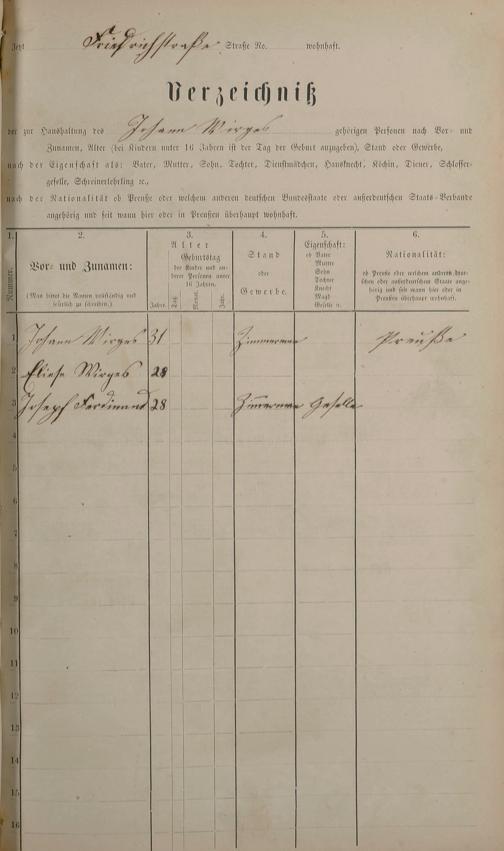 Jetzt Friedrichstraße Straße No. wohnhaft.
Verzeichniß
der zur Haushaltung des Johann Wirges gehörigen Personen nach Vor- und
Zunamen, Alter (bei Kindern unter 16 Jahren ist der Tag der Geburt anzugeben), Stand oder Gewerbe,
nach der Eigenschaft als: Vater, Mutter, Sohn, Tochter, Dienstmädchen, Hausknecht, Köchin, Diener, Schlosser-
geselle, Schreinerlehrling ꝛc.,
nach der Nationalität ob Preuße oder welchem anderen deutschen Bundesstaate oder außerdeutschen Staats-Verbande
angehörig und seit wann hier oder in Preußen überhaupt wohnhaft.
1.
Nummer.
2.
Vor- und Zunamen:
(Man bittet die Namen vollständig und
leserlich zu schreiben.)
3.
Alter
Jahre.
Geburtstag
der Kinder und an-
derer Personen unter
16 Jahren.
Tag.
Monat.
Jahr.
4.
Stand
oder
Gewerbe.
5.
Eigenschaft:
ob Vater
Mutter
Sohn
Tochter
Knecht
Magd
Geselle ꝛc.
6.
Nationalität:
ob Preuße oder welchem anderen deut-
schen oder außerdeutschen Staate ange-
hörig und seit wann hier oder in
Preußen überhaupt wohnhaft.
1 Johann Wirges 31 Preuße
2 Eliese Wirges 28
3 Joseph Ferdinand 28 Geselle
4
5
6
7
8
9
10
11
12
13
14
15
16